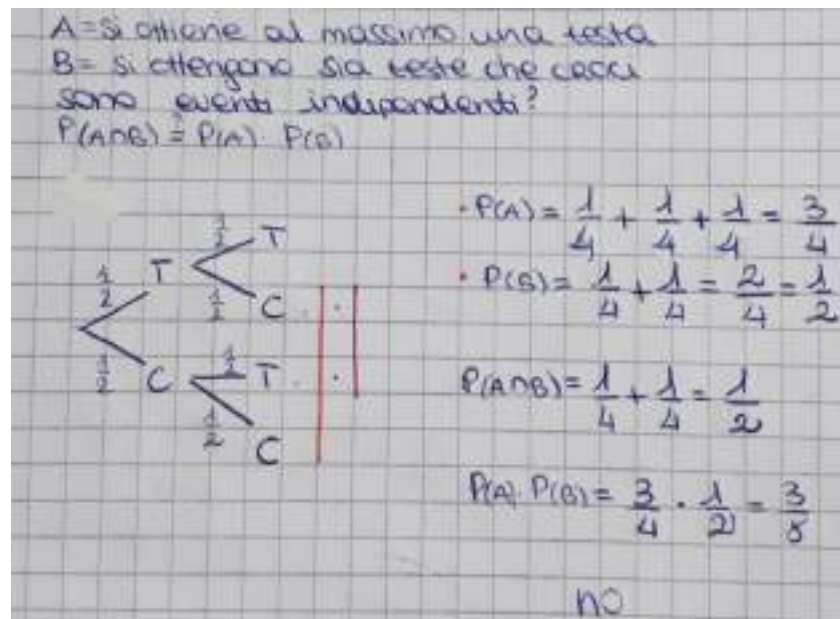 A = Si ottiene al massimo una testa
B = Si ottengono sia teste che croci
sono eventi indipendenti?
P(A∩B) = P(A) · P(B)
1/2 T 1/2 T
1/2 C
1/2 C 1/2 T
1/2 C
· P(A) = 1/4 + 1/4 + 1/4 = 3/4
· P(B) = 1/4 + 1/4 = 2/4 = 1/2
P(A∩B) = 1/4 + 1/4 = 1/2
P(A) · P(B) = 3/4 · 1/2 = 3/8
no